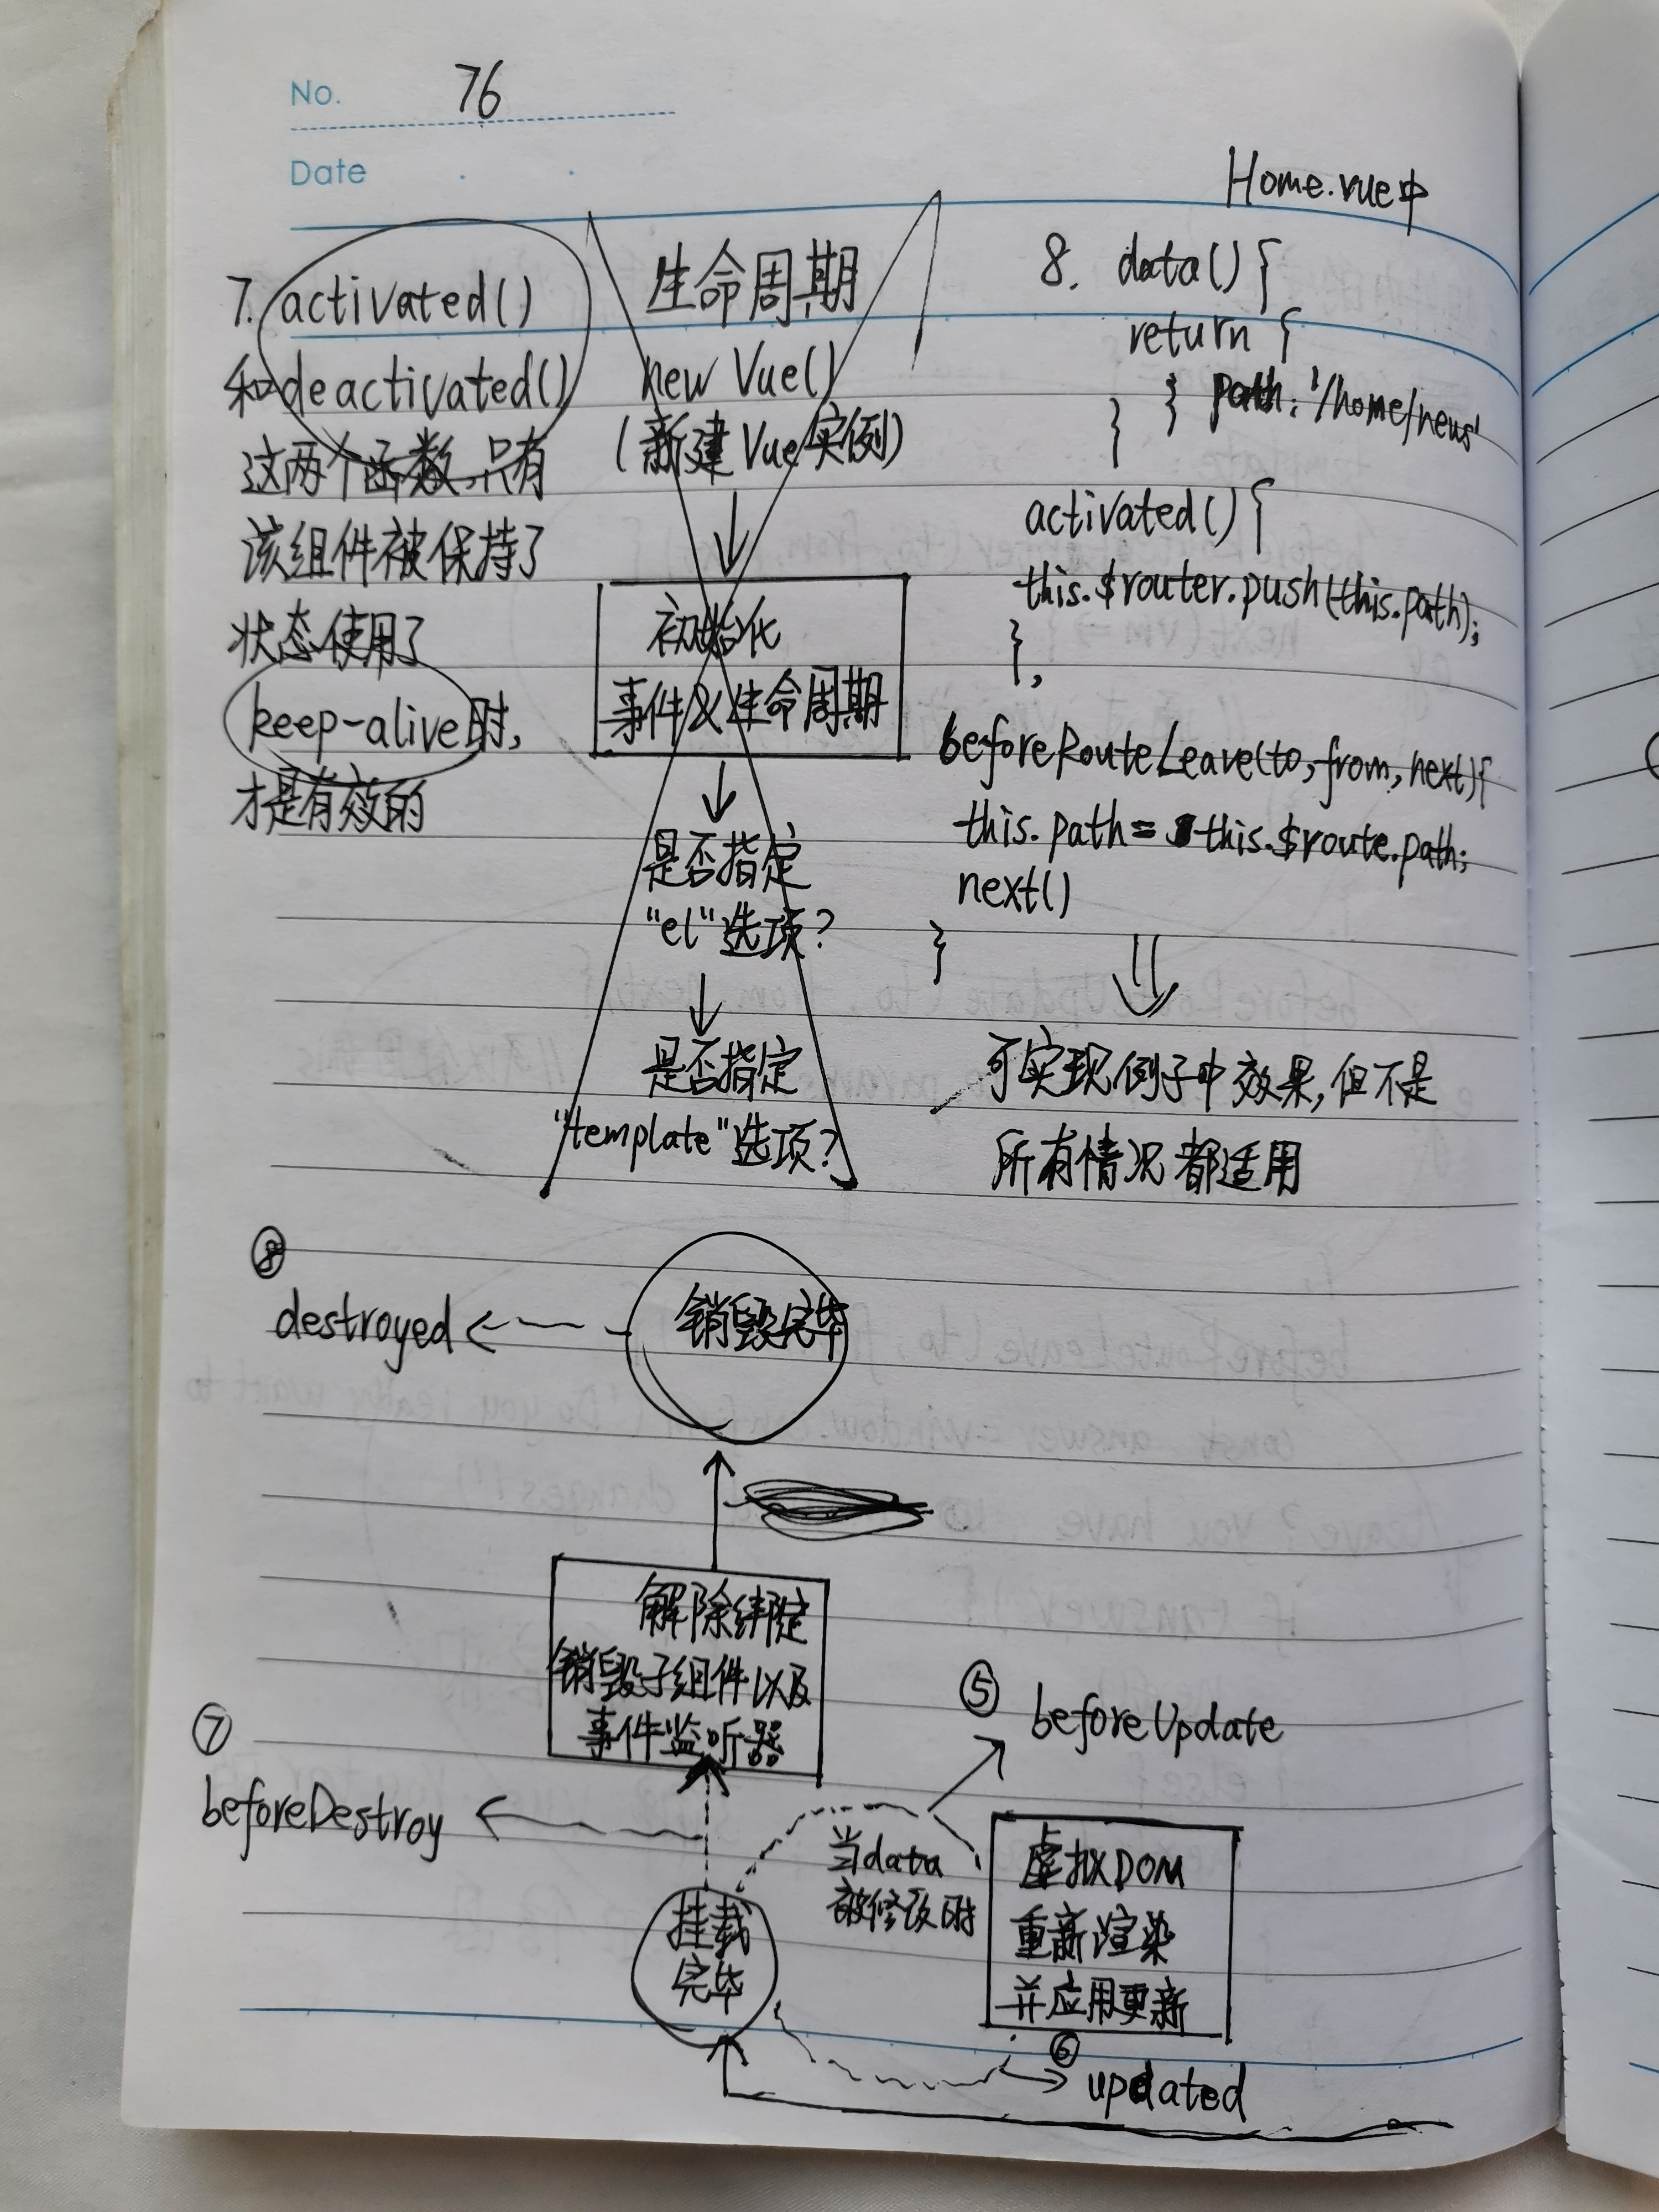 No. 76
Date
7. activated()
和deactivated()
这两个函数,只有
该组件被保持了
状态使用了
keep-alive时,
才是有效的
生命周期
new Vue()
(新建Vue实例)
初始化
事件&生命周期
是否指定
"el"选项?
是否指定
"template"选项?
Home.vue中
8. data(){
return {
} path: '/home/news'
}
activated(){
this.$router.push(this.path);
},
beforeRouteLeave(to,from,next){
this.path = this.$route.path;
next()
}
可实现例子中效果,但不是
所有情况都适用
⑧
destroyed
销毁完毕
解除绑定
销毁子组件以及
事件监听器
⑦
beforeDestroy
⑤ beforeUpdate
当data
被修改时
虚拟DOM
重新渲染
并应用更新
挂载
完毕
⑥
updated